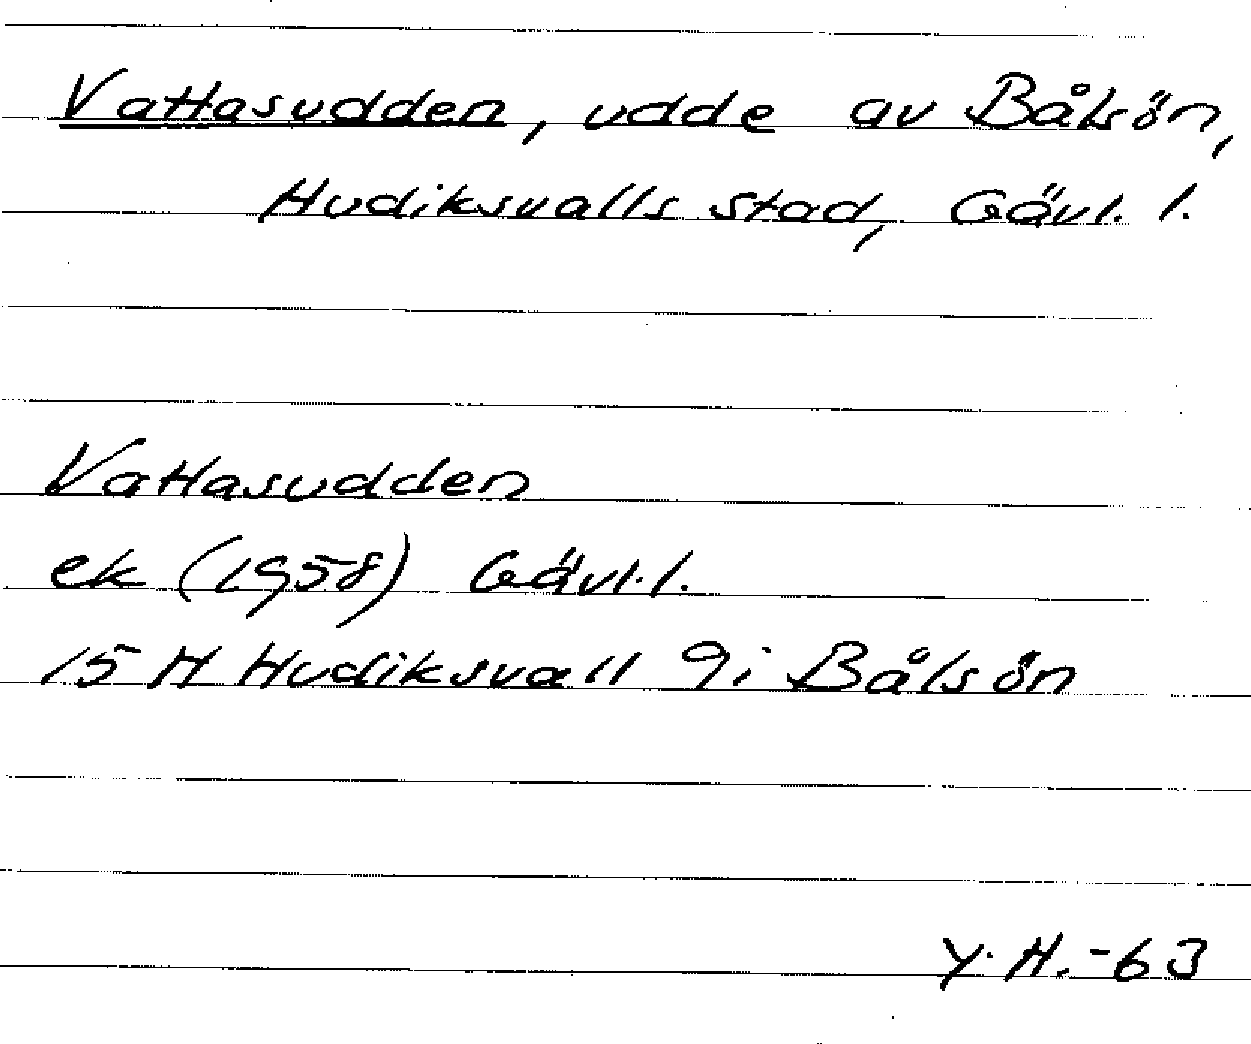 Vattasudden, udde av Bålsön,
Hudiksvalls stad, Gävl. l.
Vattasudden
ek (1958) Gävl. l.
15 H Hudiksvall 9i Bålsön
Y. H. -63